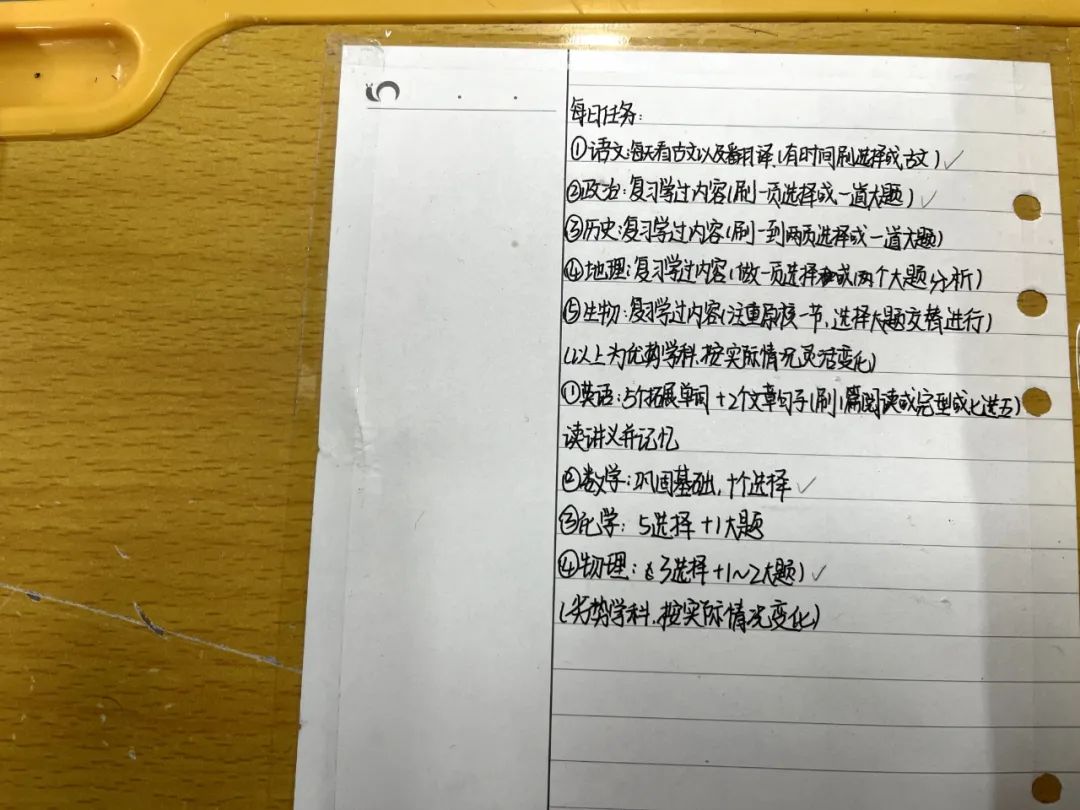 每日任务:
①语文:每天看古文以及翻译.(有时间刷选择或古文)✓
②政治:复习学过内容(刷一页选择或一道大题)✓
③历史:复习学过内容(刷一到两页选择或一道大题)
④地理:复习学过内容(做一页选择或两个大题分析)
⑤生物:复习学过内容(注重原核一节,选择大题交替进行)
(以上为优势学科.按实际情况灵活变化)
①英语:5个拓展单词+2个文章句子(刷1篇阅读或完型或七选五)
读讲义并记忆
②数学:巩固基础,十个选择✓
③化学:5选择+1大题
④物理:(3选择+1~2大题)✓
(劣势学科.按实际情况变化)